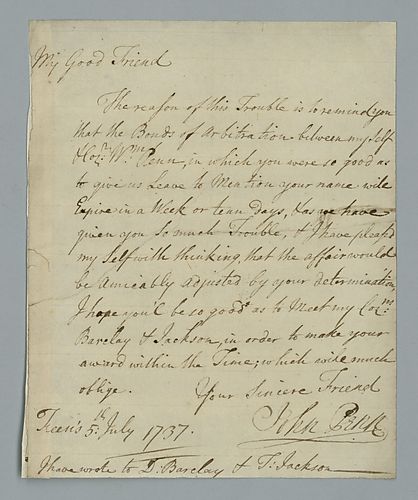 My Good Friend
The reason of this Trouble is to remind you
that the Bonds of Arbitration between my Self
& Coz.n W.m Penn, in which you were so good as
to give us Leave to Mention your name will
Expire in a Week or tenn days, & as we have
given you so much Trouble, & I have pleas'd
my Self with thinking, that the affair would
be Amicably adjusted by your determination
I hope you'l be so good as to Meet my Coz.ns
Barclay & Jackson, in order to make your
award within the Time; which will much
oblige.
Your Sincere Friend
5.th July 1737.
Penn
I have wrote to D: Barclay & T: Jackson